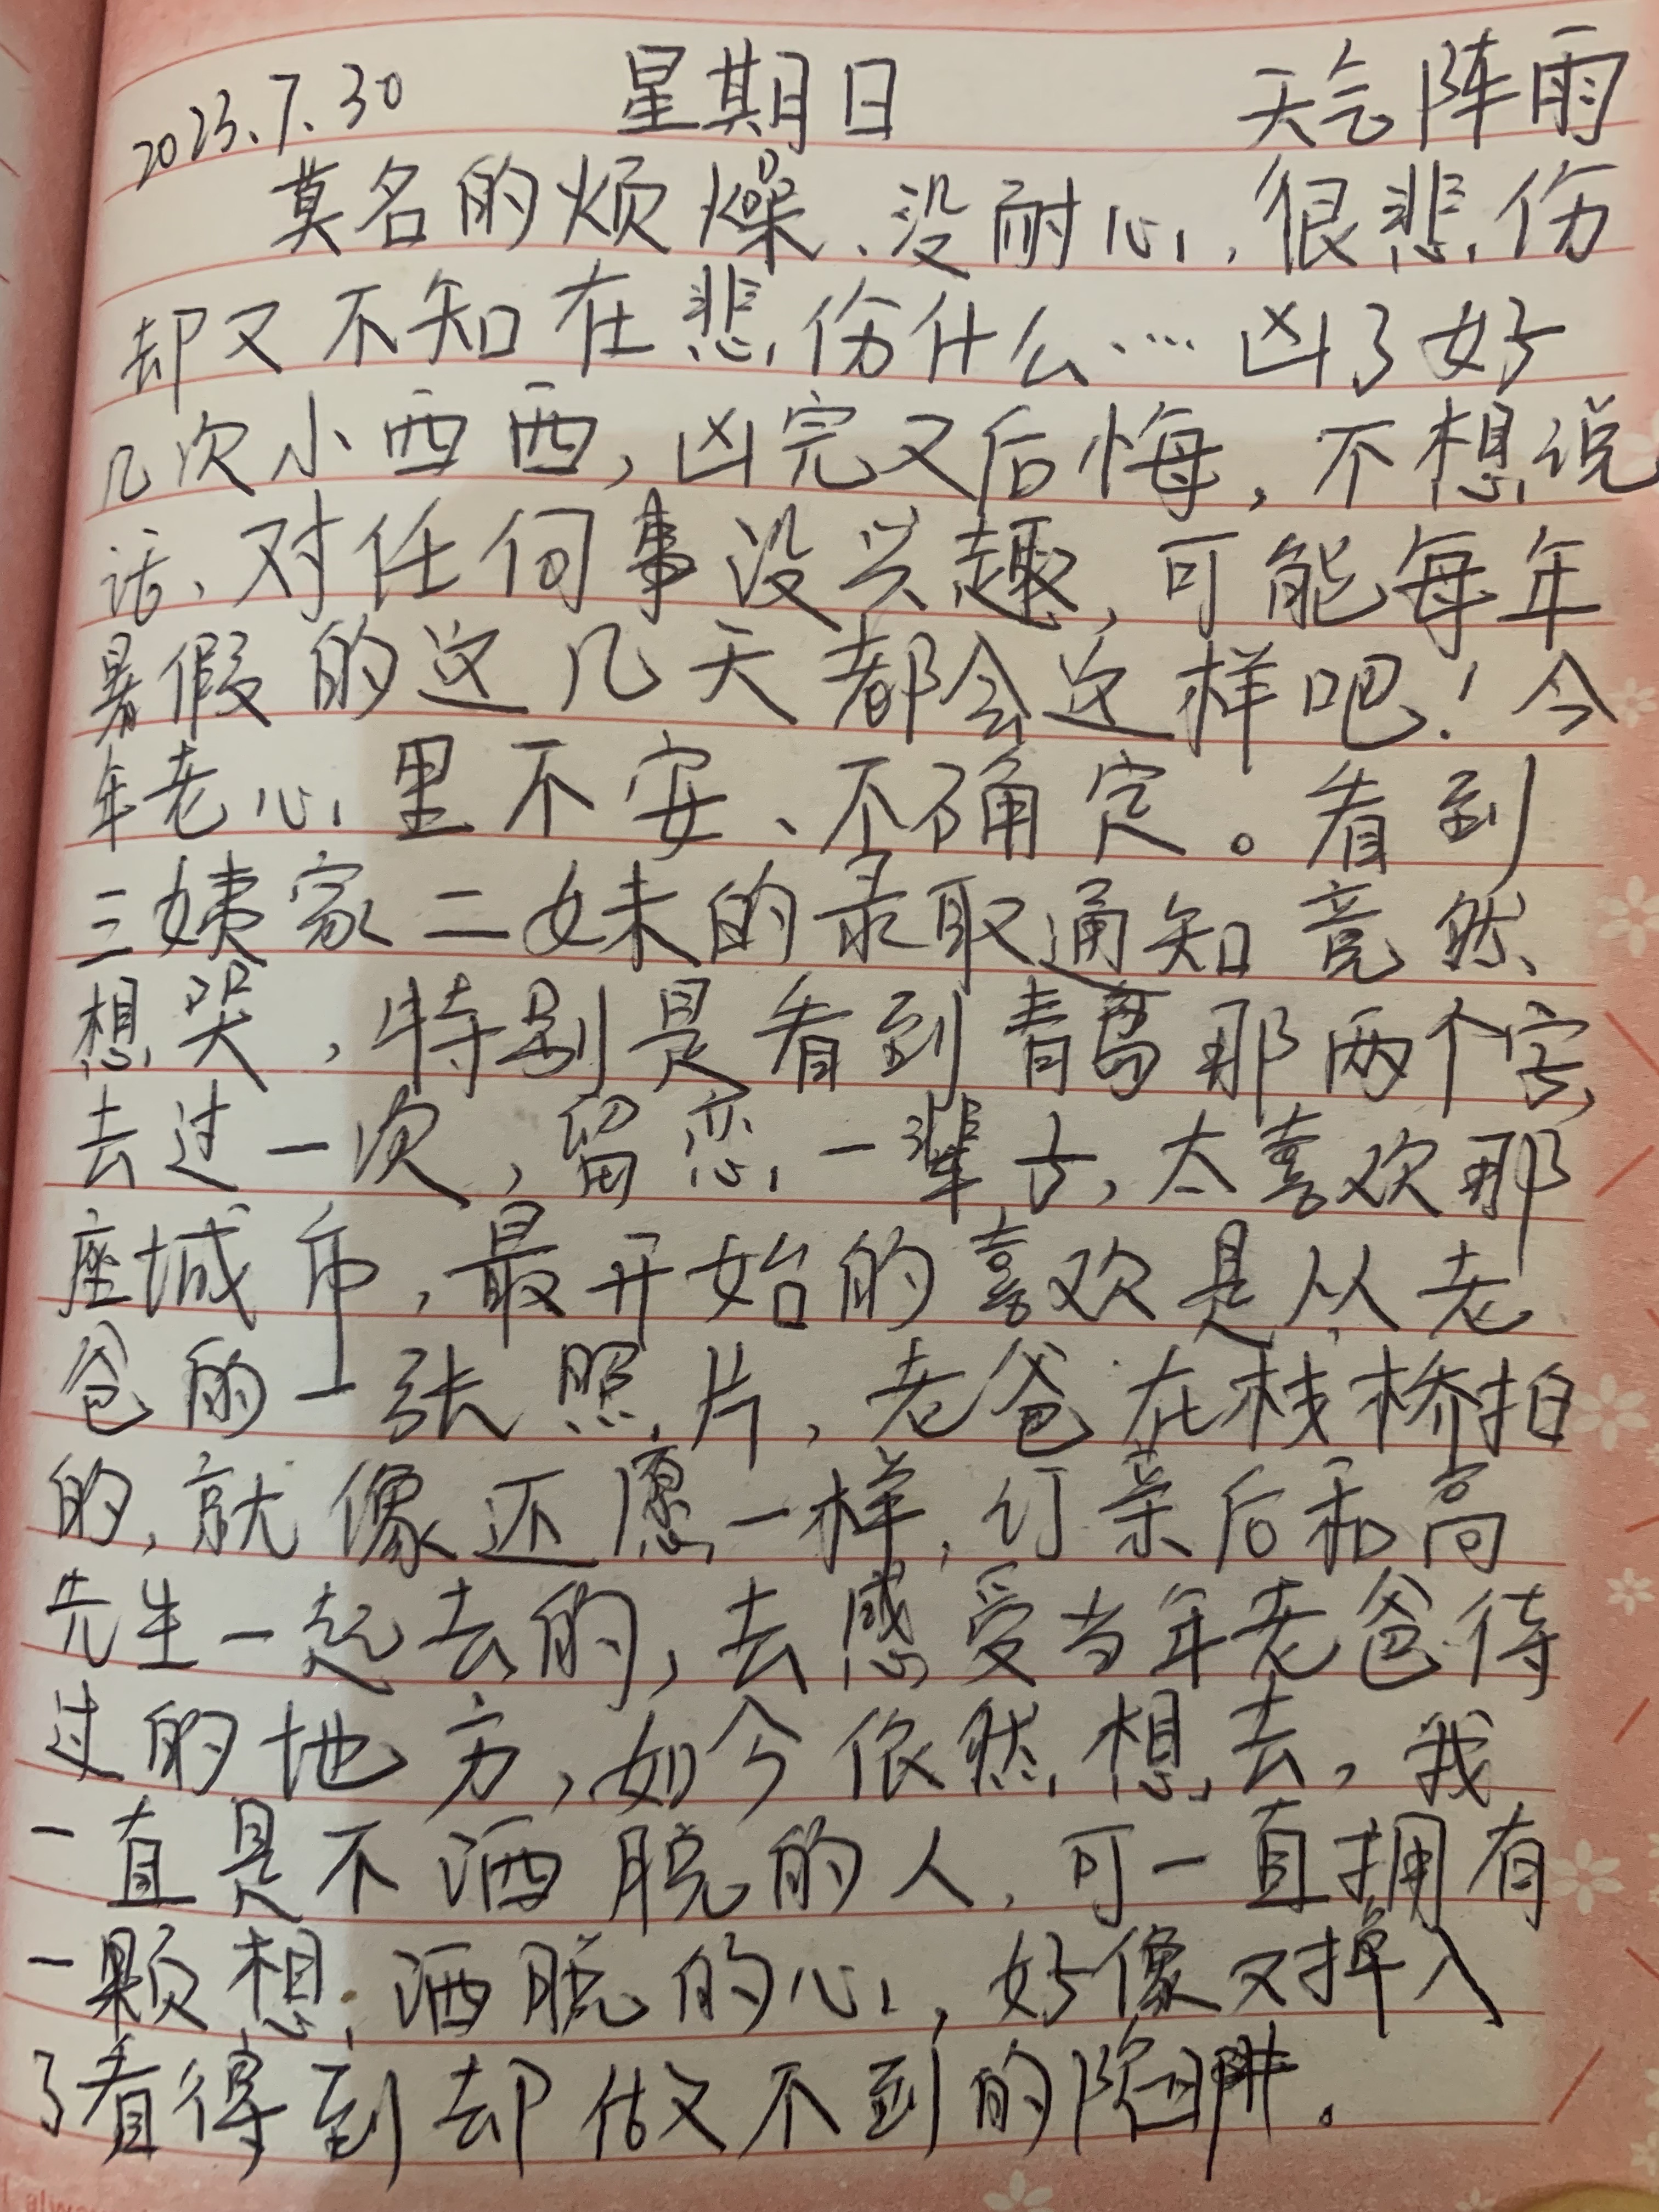 2023.7.30 星期日 天气阵雨
莫名的烦燥、没耐心,很悲伤
却又不知在悲伤什么…凶了好
几次小西西,凶完又后悔,不想说
话、对任何事没兴趣,可能每年
暑假的这几天都会这样吧!今
年老心里不安、不确定。看到
三姨家二妹的录取通知竟然
想哭,特别是看到青岛那两个字,
去过一次,留恋一辈子,太喜欢那
座城市,最开始的喜欢是从老
爸的一张照片,老爸在栈桥拍
的,就像还愿一样,订亲后和高
先生一起去的,去感受当年老爸待
过的地方,如今依然想去,我
一直是不洒脱的人,可一直拥有
一颗想洒脱的心,好像又掉入
了看得到却做不到的陷阱。